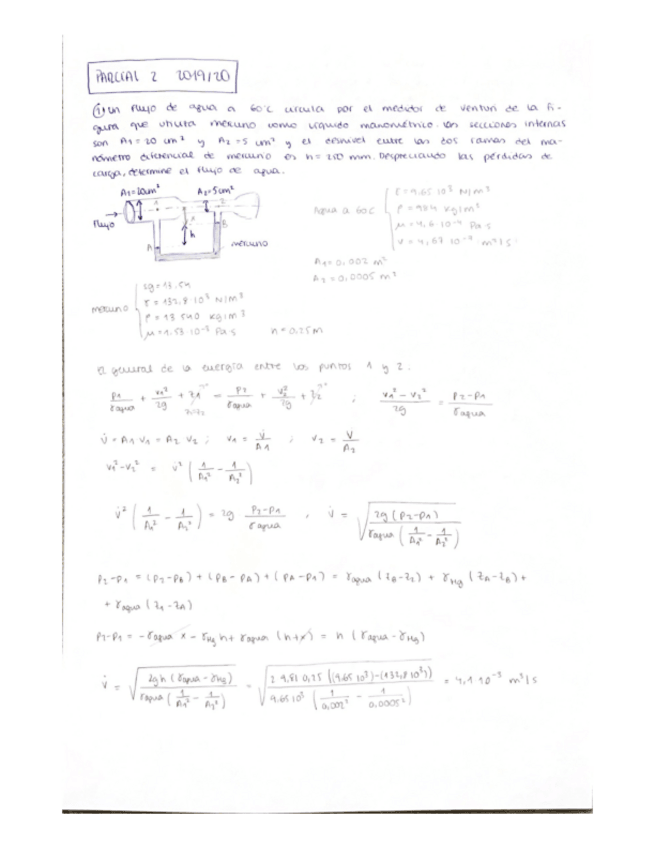 PARCIAL 2 2019/20
① Un flujo de agua a 60°C circula por el medidor de venturi de la fi-
gura que utiliza mercurio como líquido manométrico. Las secciones internas
son A1=20 cm² y A2=5 cm² y el desnivel entre las dos ramas del ma-
nómetro diferencial de mercurio es h=250 mm. Despreciando las pérdidas de
carga, determine el flujo de agua.
A1=20cm² A2=5cm²
flujo
1 2
h
A B
mercurio
Agua a 60°C
γ = 9,65·10³ N/m³
ρ = 984 kg/m³
μ = 4,6·10⁻⁴ Pa·s
ν = 4,67·10⁻⁷ m²/s
A1=0,002 m²
A2=0,0005 m²
mercurio
sg=13,54
γ = 132,8·10³ N/m³
ρ = 13540 kg/m³
μ=1,53·10⁻³ Pa·s
h=0,25m
general de la energía entre los puntos 1 y 2.
p1/γagua + v1²/2g + z1 = p2/γagua + v2²/2g + z2 ; (v1² - v2²)/2g = (p2-p1)/γagua
V̇ = A1 v1 = A2 v2 ; v1 = V̇/A1 ; v2 = V̇/A2
v1²-v2² = V̇² (1/A1² - 1/A2²)
V̇² (1/A1² - 1/A2²) = 2g (p2-p1)/γagua , V̇ = √(2g (p2-p1) / γagua (1/A1² - 1/A2²))
p2-p1 = (p2-pB) + (pB-pA) + (pA-p1) = γagua (zB-z2) + γHg (zA-zB) +
+ γagua (z1-zA)
p2-p1 = -γagua x - γHg h + γagua (h+x) = h (γagua - γHg)
V̇ = √(2gh (γagua - γHg) / γagua (1/A1² - 1/A2²)) = √(2 9,81 0,25 ((9,65 10³)-(132,8 10³)) / 9,65 10³ (1/0,002² - 1/0,0005²)) = 4,1 10⁻³ m³/s